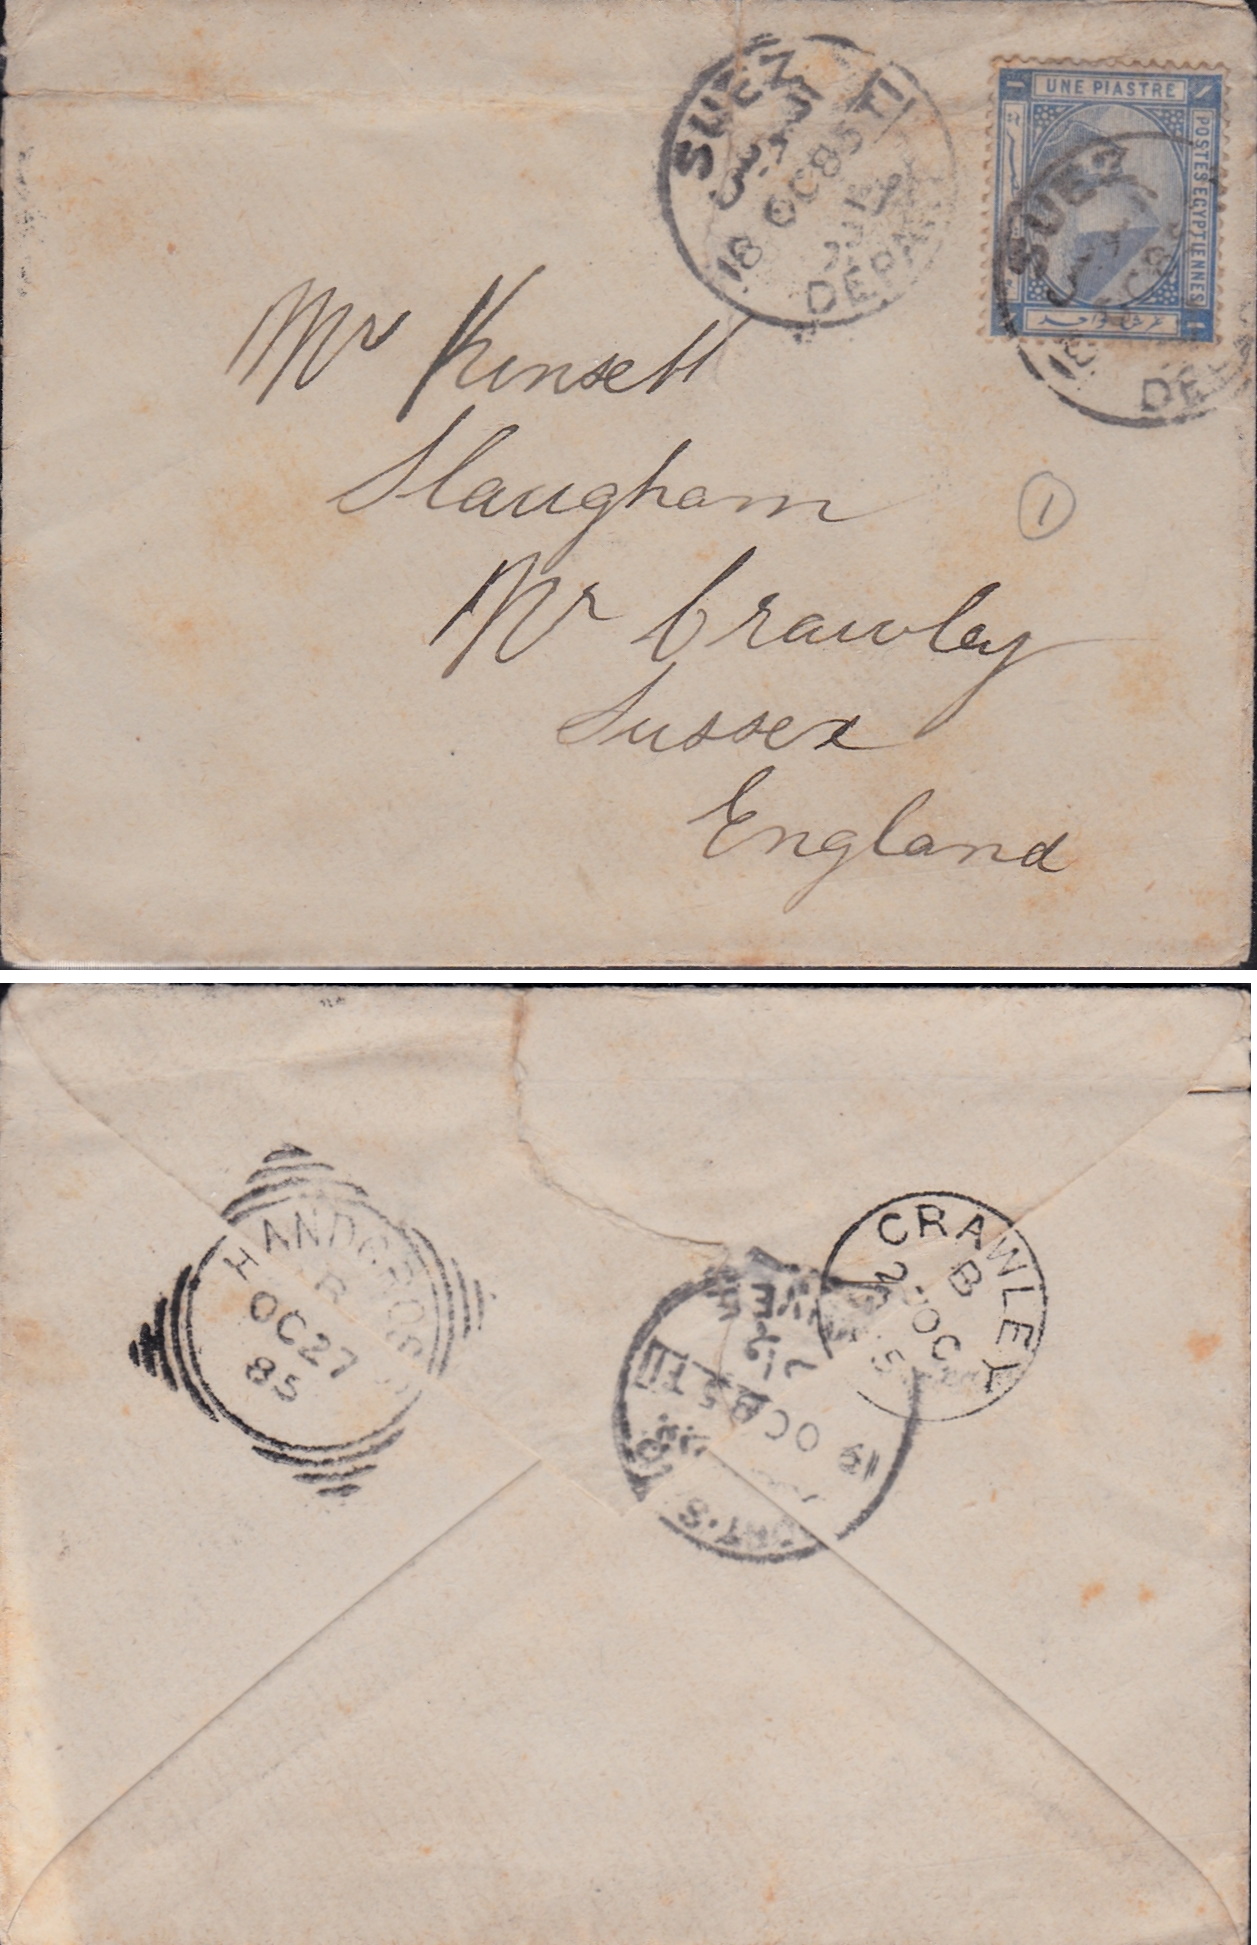 SUEZ
18 OC 85 TI
DEPART
UNE PIASTRE
POSTES EGYPTIENNES
غرش واحد
SUEZ
Mr Kinsett
Slaugham
Nr Crawley
Sussex
England
1
HANDCROSS
B
OC 27
85
CRAWLEY
B
OC
19 OC 85 TII